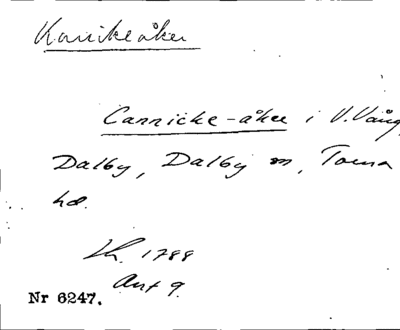 Kanikeåker
Cannicke-åker i V. Vång,
Dalby, Dalby sn, Torna
hd.
Lh. 1788
Ant 9.
Nr 6247.